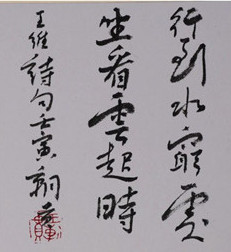 行到水窮處
坐看雲起時
王維詩句壬寅